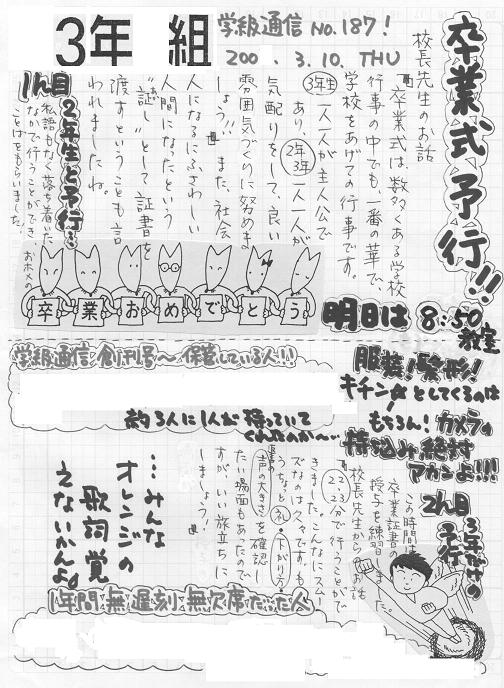 3年 組
学級通信 No.187!
200 . 3.10. THU
卒業式予行!!
校長先生のお話
『卒業式は、数多くある学校
行事の中でも、一番の華で、
学校をあげての行事です。
3年生一人一人が主人公で
あり、2年3年一人一人が
気配りをして、良い
雰囲気づくりに努めま
しょう!!』また、社会
人になるにふさわしい
人間になったという
"証し"として、証書を
渡すということも言
われましたね。
1h目
2年生と予行…
私語もなく落ち着いた
なかで行うことができ、
おホメの
ことばをもらいました。
卒業おめでとう
明日は 8:50
教室
服装!髪形!
キチンとしてくるのは
もちろん!カメラの
持込み絶対
アカンよ!!!
学級通信 創刊号〜 保管している人!!
約3人に1人が持っていて
くれたのか〜…
2h目
3年だけの
予行
この時間は、
卒業証書の
授与を練習しました。
校長先生からのお話も
22、23分で行うことがで
きました。こんなにスムー
ズなのは久々です。も
うちょっと礼・上がり方・
声の大きさを確認し
たい場面もあったので
すが、いい旅立ちに
しましょう!!
…みんな
オレンジの
歌詞覚
えないかんよ。
1年間無遅刻無欠席だった人